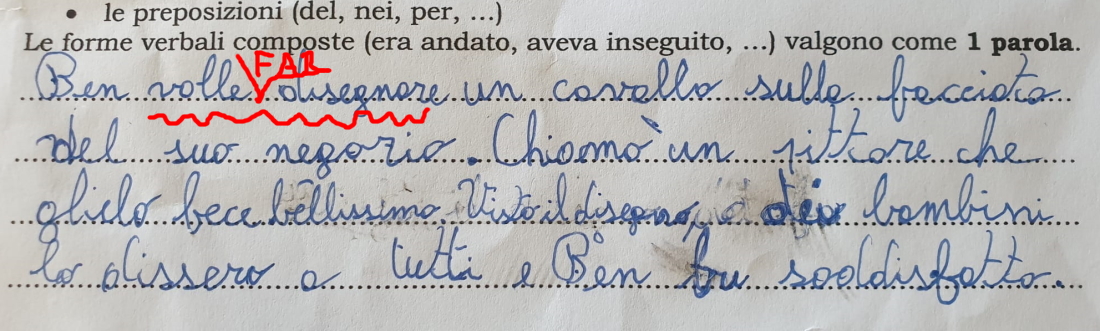 • le preposizioni (del, nei, per, ...)
Le forme verbali composte (era andato, aveva inseguito, ...) valgono come 1 parola.
FAR
Ben volle disegnare un cavallo sulla facciata
del suo negozio. Chiamò un pittore che
glielo fece bellissimo. Visto il disegno, dei bambini
lo dissero a tutti e Ben fu soddisfatto.